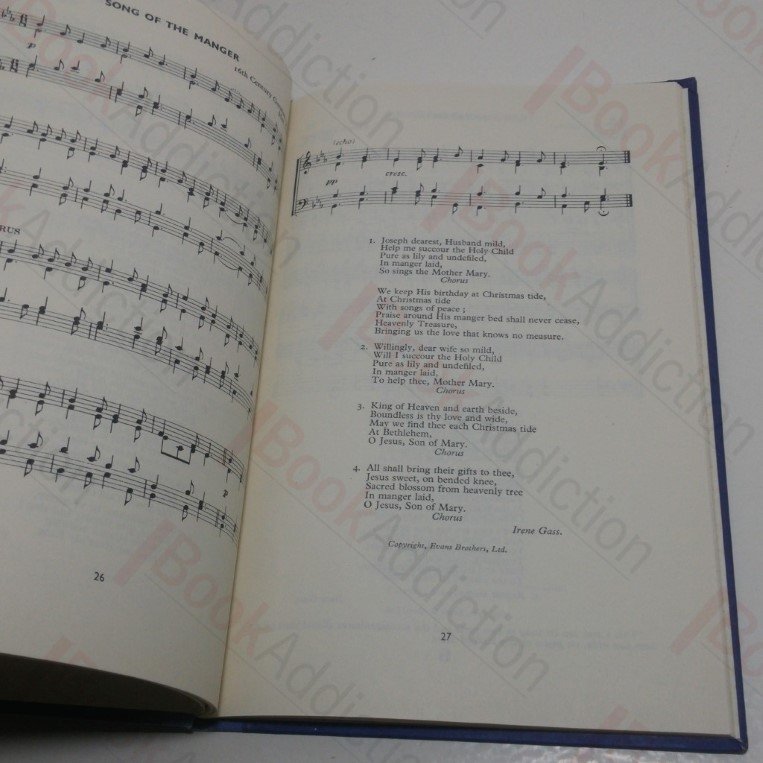 SONG OF THE MANGER
16th Century
p
RUS
p
26
(echo)
pp
cresc.
1. Joseph dearest, Husband mild,
Help me succour the Holy Child
Pure as lily and undefiled,
In manger laid,
So sings the Mother Mary.
Chorus
We keep His birthday at Christmas tide,
At Christmas tide
With songs of peace ;
Praise around His manger bed shall never cease,
Heavenly Treasure,
Bringing us the love that knows no measure.
2. Willingly, dear wife so mild,
Will I succour the Holy Child
Pure as lily and undefiled,
In manger laid,
To help thee, Mother Mary.
Chorus
3. King of Heaven and earth beside,
Boundless is thy love and wide,
May we find thee each Christmas tide
At Bethlehem,
O Jesus, Son of Mary.
Chorus
4. All shall bring their gifts to thee,
Jesus sweet, on bended knee,
Sacred blossom from heavenly tree
In manger laid,
O Jesus, Son of Mary.
Chorus
Irene Gass.
Copyright, Evans Brothers, Ltd.
27
BookAddiction